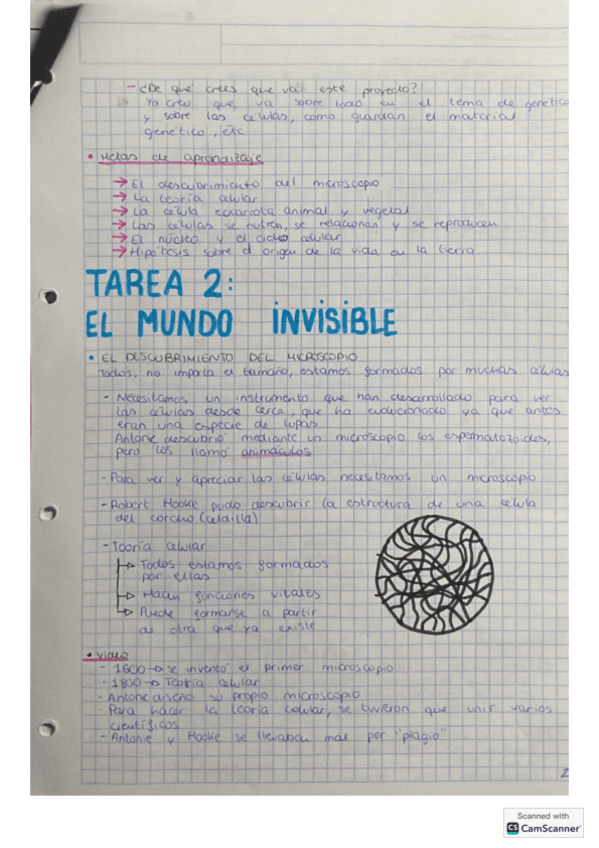 - ¿De qué crees que va este proyecto?
Yo creo que va sobre todo en el tema de genética
y sobre las células, como guardan el material
genético, etc
• Metas de aprendizaje
→ El descubrimiento del microscopio
→ La teoría celular
→ La célula eucariota animal y vegetal
→ Las células se nutren, se relacionan y se reproducen
→ El núcleo y el ciclo celular
→ Hipótesis sobre el origen de la vida en la tierra
TAREA 2:
EL MUNDO INVISIBLE
• EL DESCUBRIMIENTO DEL MICROSCOPIO
Todos, no importa el tamaño, estamos formados por muchas células
- Necesitamos un instrumento que han desarrollado para ver
las células desde cerca, que ha evolucionado ya que antes
eran una especie de lupas
Antone descubrió mediante un microscopio los espermatozoides,
pero los llamó animáculos
- Para ver y apreciar las células necesitamos un microscopio
- Robert Hooke pudo descubrir la estructura de una célula
del corcho (celdilla)
- Teoría celular
→ Todos estamos formados
por ellas
→ Hacen funciones vitales
→ Puede formarse a partir
de otra que ya existe
• Video
- 1600 → se inventó el primer microscopio
- 1800 → Teoría celular
- Antone diseñó su propio microscopio
- Para hacer la teoría celular, se tuvieron que unir varios
científicos
- Antonie y Hooke se llevaban mal por "plagio"
2
Scanned with
CS CamScanner